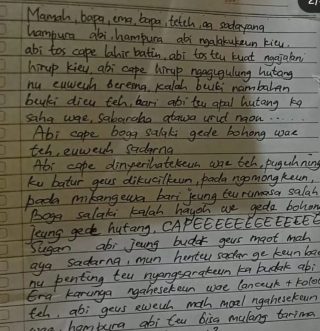 Mamah, bapa, ema, bapa, teteh, aa sadayana
hampura abi, hampura, abi ngalakukeun kieu,
abi tos cape lahir batin, abi tos teu kuat ngajalani
hirup kieu, abi cape hirup ngagugulung hutang
nu euweuh beresna, kalah beuki nambahan
beuki dieu teh, bari abi teu apal hutang ka
saha wae, sabaraha atawa urut naon.....
Abi cape boga salaki gede bohong wae
teh, euweuh sadarna
Abi cape dinyerihatekeun wae teh, puguh ning
ku batur geus dikucilkeun, pada ngomongkeun...
pada mikangewa bari jeung teu rumasa salah
Boga salaki kalah hayoh we gede bohong
jeung gede hutang, CAPEEEEEEEEEEEEE
Sugan abi jeung budak geus maot mah
aya sadarna, mun henteu sadar ge keun bae
nu penting teu nyangsarakeun ka budak abi
Era karunya ngahesekeun wae lanceuk + kolot
teh, abi geus euweuh mah moal ngahesekeun
hampura abi teu bisa mulang tarima